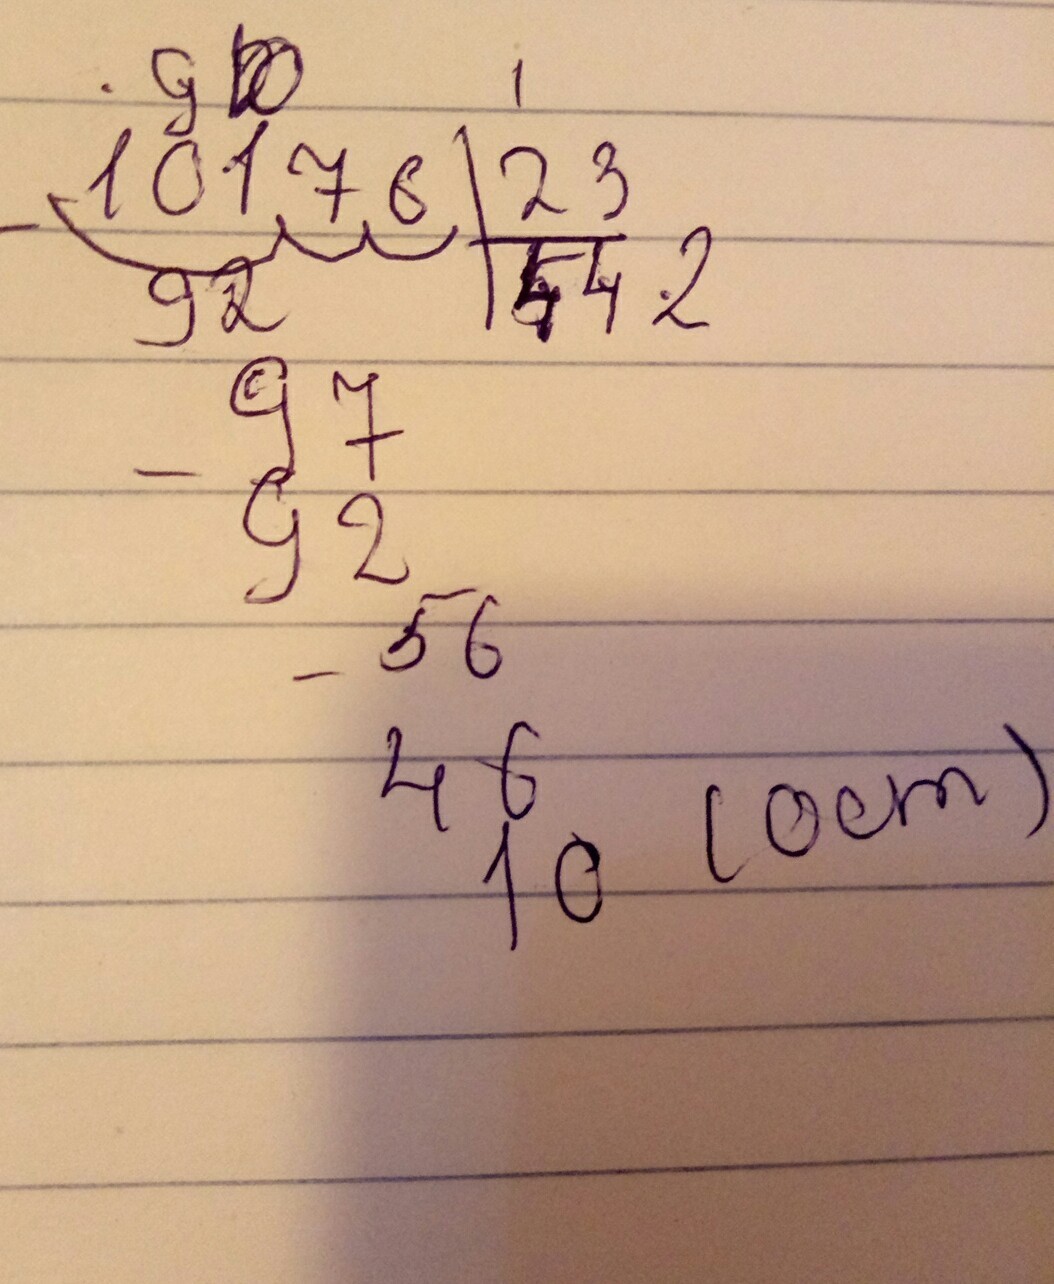 9 10 1
10176 | 23
- 92 442
97
- 92
56
- 46
10 (ост)